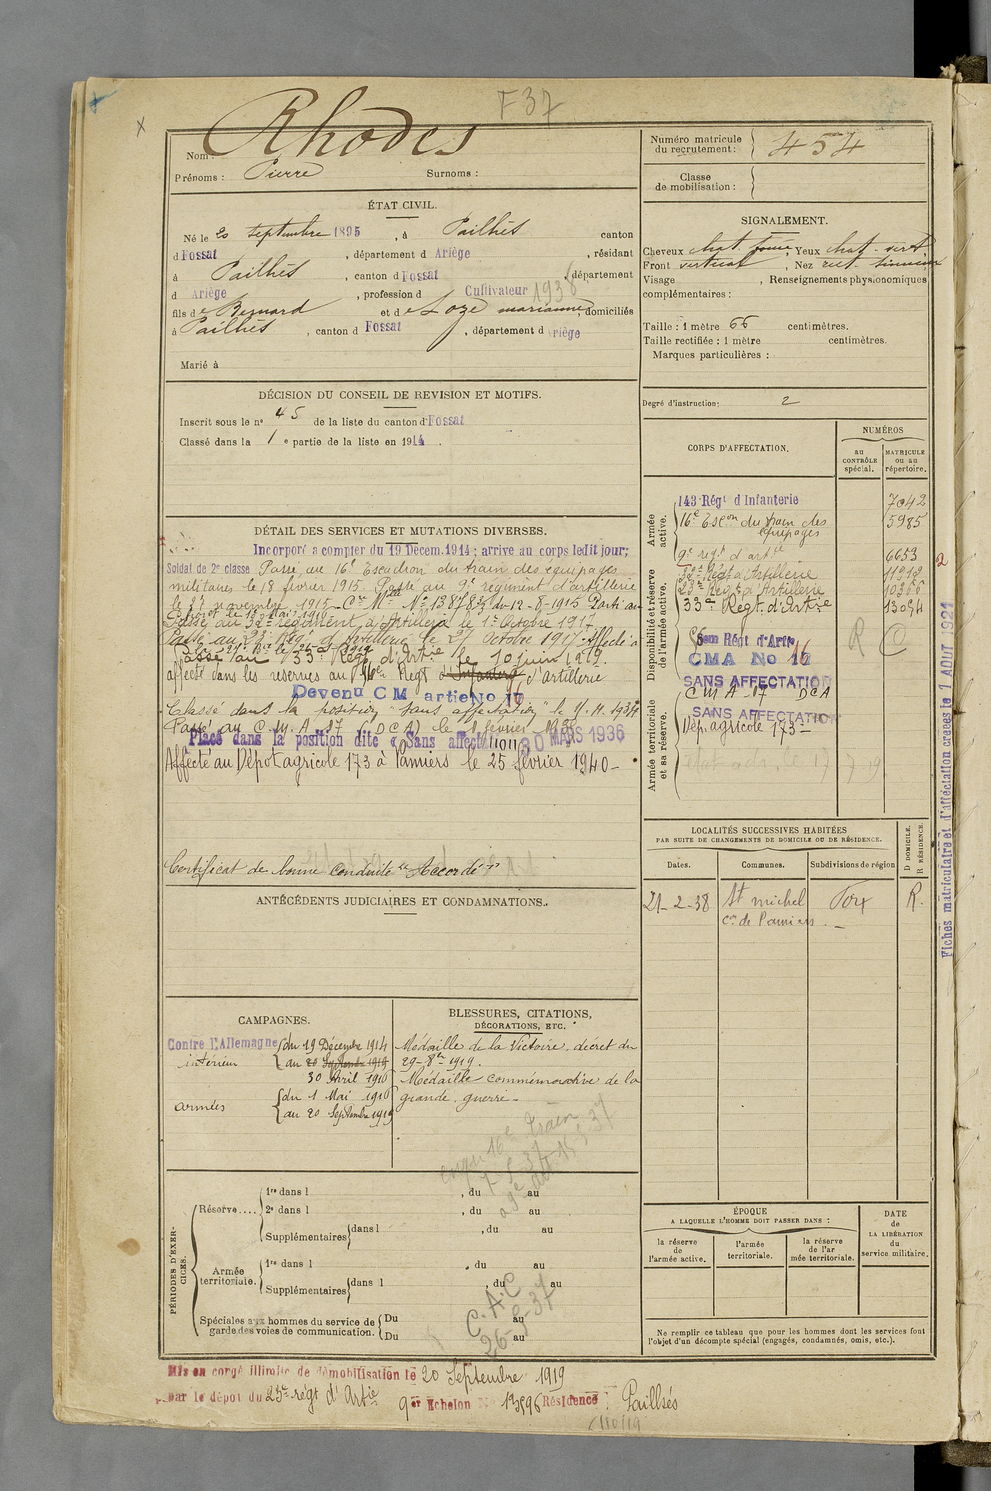 F 37
Rhodes
Nom :
Prénoms : Pierre Surnoms :
Numéro matricule du recrutement : 454
Classe de mobilisation :
ÉTAT CIVIL.
Né le 20 septembre 1895, à Pailhès canton
d Fossat, département d Ariège, résidant
à Pailhès, canton d Fossat, département
d Ariège, profession d Cultivateur 1938
fils de Bernard et de Loze marianne, domiciliés
à Pailhès, canton d Fossat, département d riège
Marié à
SIGNALEMENT.
Cheveux chat. , Yeux chat. vert
Front vertical, Nez rect. sinueux
Visage , Renseignements physionomiques
complémentaires :
Taille : 1 mètre 66 centimètres.
Taille rectifiée : 1 mètre centimètres.
Marques particulières :
Degré d'instruction : 2
DÉCISION DU CONSEIL DE REVISION ET MOTIFS.
Inscrit sous le nº 45 de la liste du canton d Fossat
Classé dans la 1 e partie de la liste en 1914.
CORPS D'AFFECTATION.
NUMÉROS
au CONTRÔLE spécial.
MATRICULE ou au répertoire.
Armée active.
143 Régt d Infanterie 7042
16e Escon du train des équipages 5985
9e régt d'artie 6653
Disponibilité et réserve de l'armée active.
32e Régt d'Artillerie 11912
23e Régt d'Artillerie
33e Régt d'Artie 13094
Régt d'Artie R C
CMA No 17 16
SANS AFFECTATION
CMA - 17 DCA
SANS AFFECTATION
Armée territoriale et sa réserve.
Dép. agricole 173
DÉTAIL DES SERVICES ET MUTATIONS DIVERSES.
Incorporé a compter du 19 Décem. 1914 ; arrive au corps ledit jour;
Soldat de 2e classe Passé au 16e Escadron du train des équipages
militaires le 18 février 1915. Passé au 9e régiment d'artillerie
le 27 novembre 1915 - 12-8-1915 Parti au
Passé au 32e régiment d'Artillerie le 1er Octobre 1917
Passé au 23e Régt d'Artillerie le 27 Octobre 1917. Affecté à
Passé au 33e Régt d'Artie le 10 juin 1919.
affecté dans les reserves au Régt d'Infanterie d'artillerie
Devenu C M artie No 17
Classé dans la position "sans affectation" le 4. 11. 1934
Passé au C. M. A 17 (DCA) le 1 février 1936
Placé dans la position dite « Sans affectation 30 MARS 1936
Affecté au Dépôt agricole 173 à Pamiers le 25 février 1940 -
Certificat de bonne conduite "Accordé"
ANTÉCÉDENTS JUDICIAIRES ET CONDAMNATIONS.
LOCALITÉS SUCCESSIVES HABITÉES
PAR SUITE DE CHANGEMENTS DE DOMICILE OU DE RÉSIDENCE.
Dates.
Communes.
Subdivisions de région
D DOMICILE.
R RÉSIDENCE.
21-2-38 St michel Foix R.
con de Pamiers
Fiches matriculaire et d'affectation créées le 1 AOUT 1921
2
CAMPAGNES.
Contre L'Allemagne
intérieur
du 19 Décembre 1914
au 20 Septembre 1919
30 Avril 1916
armées
du 1 Mai 1916
au 20 Septembre 1919
BLESSURES, CITATIONS,
DÉCORATIONS, ETC.
Médailles de la Victoire. décret du
29-8bre 1919.
Médaille commémorative de la
grande guerre -
16e train
PÉRIODES D'EXERCICES.
Réserve....
1re dans l , du au
2e dans l , du au
Supplémentaires dans l , du au
Armée territoriale.
1re dans l , du au
Supplémentaires dans l , du au
Spéciales aux hommes du service de garde des voies de communication.
Du au
Du au
C.A.C
26-8-37
ÉPOQUE
A LAQUELLE L'HOMME DOIT PASSER DANS :
la réserve de l'armée active.
l'armée territoriale.
la réserve de l'armée territoriale.
DATE de LA LIBÉRATION du service militaire.
Ne remplir ce tableau que pour les hommes dont les services font
l'objet d'un décompte spécial (engagés, condamnés, omis, etc.).
Mis en congé illimité de démobilisation le 20 Septembre 1919
par le dépôt du 23e régt d'Artie 9er Echelon No 13596 Résidence : Pailhès